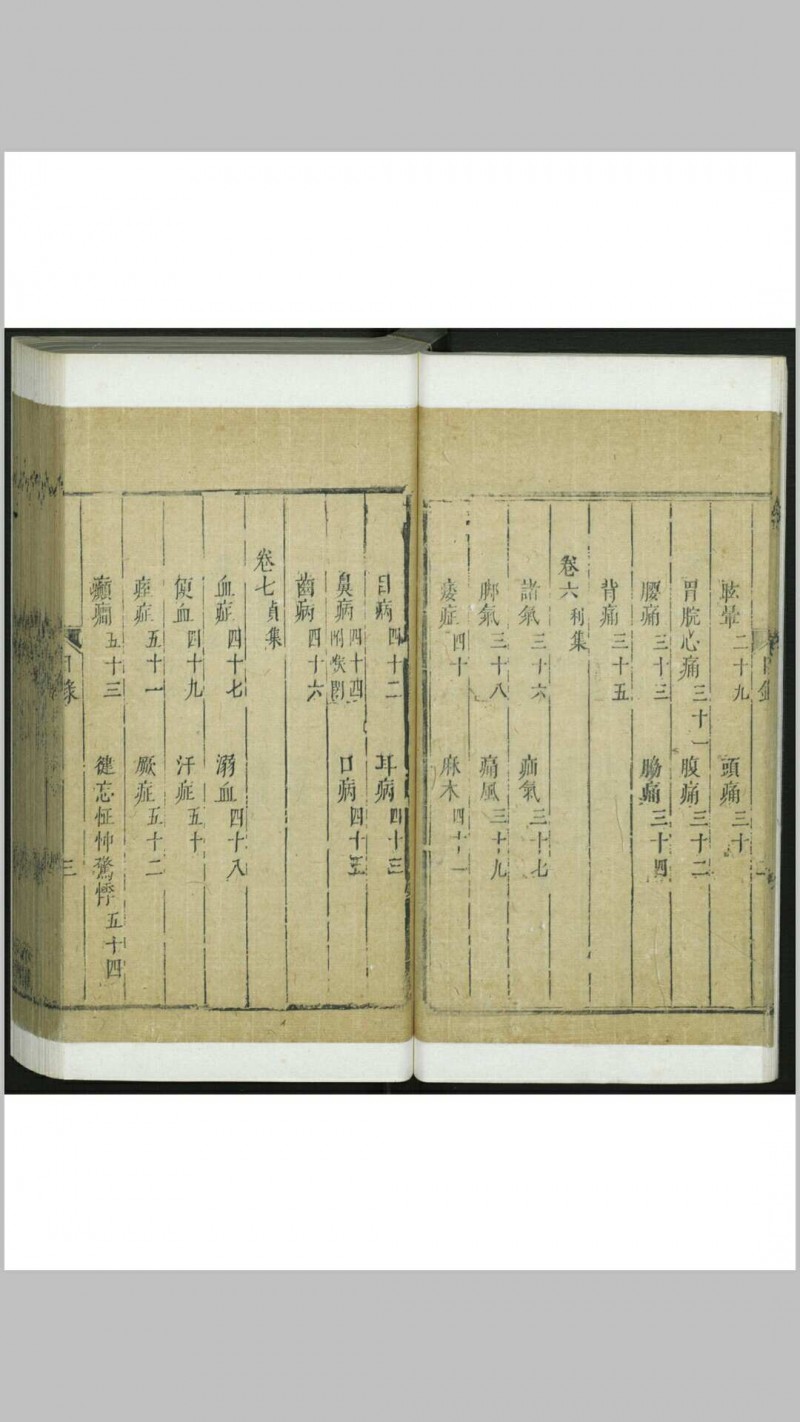 眩暈二十九 頭痛三十
胃脘心痛三十一 腹痛三十二
腰痛三十三 脇痛三十四
背痛三十五
卷六利集
諸氣三十六 疝氣三十七
脚氣三十八 痛風三十九
痿症四十 麻木四十一
目病四十二 耳病四十三
鼻病四十四 口病四十五
齒病四十六
卷七貞集
血症四十七 溺血四十八
便血四十九 汗症五十
痙症五十一 厥症五十二
癲癎五十三 健忘怔忡驚悸五十四
目錄 三